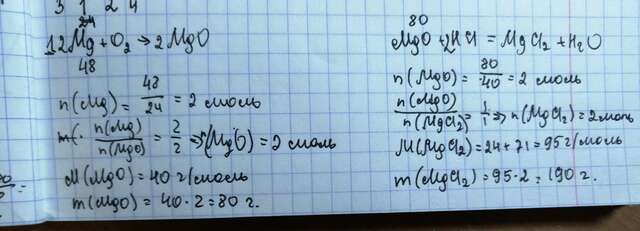 3 1 2 4
24
1 2Mg + O₂ → 2MgO
48
n(Mg) = 48/24 = 2 моль
n(Mg)/n(MgO) = 2/2 ⇒ n(MgO) = 2 моль
M(MgO) = 40 г/моль
m(MgO) = 40 · 2 = 80 г.
80
MgO + 2HCl = MgCl₂ + H₂O
n(MgO) = 80/40 = 2 моль
n(MgO)/n(MgCl₂) = 1/1 ⇒ n(MgCl₂) = 2 моль
M(MgCl₂) = 24 + 71 = 95 г/моль
m(MgCl₂) = 95 · 2 = 190 г.